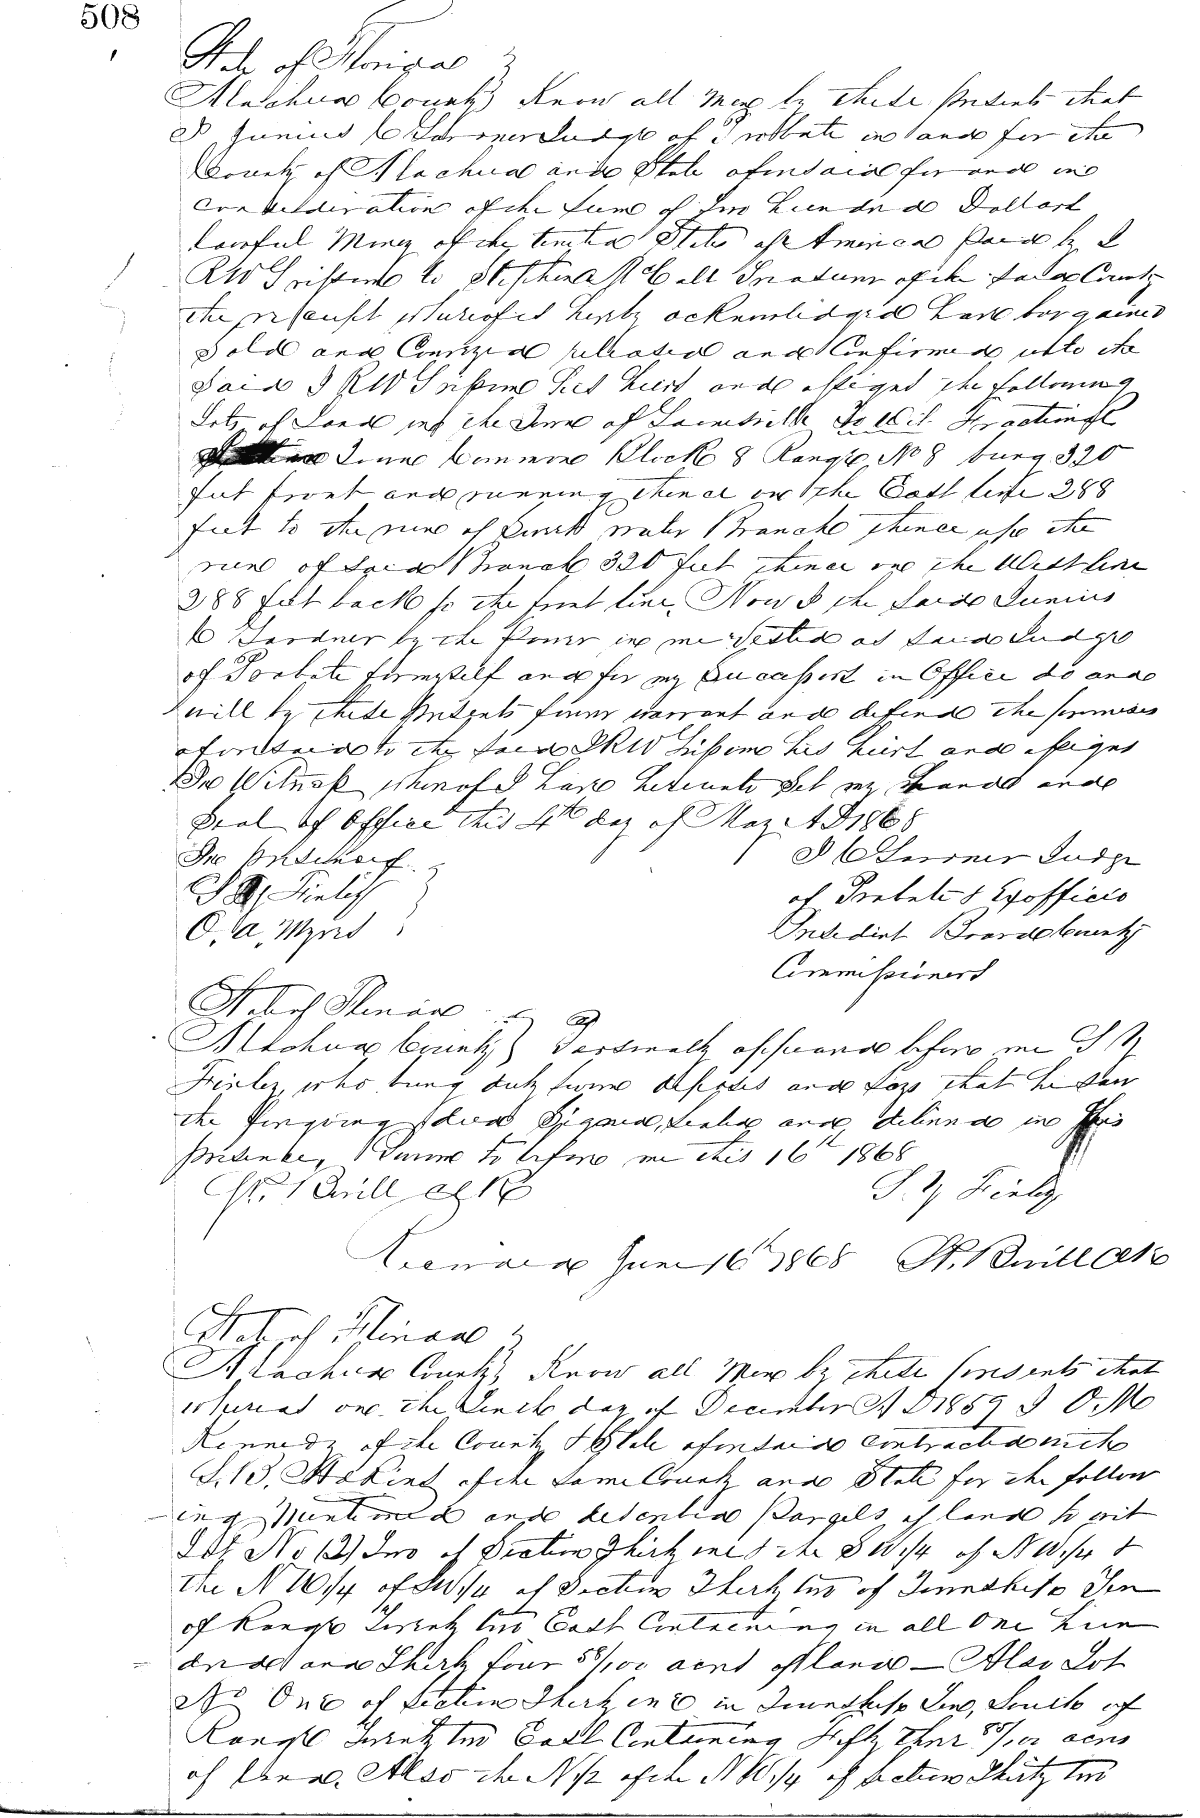 508
State of Florida
Alachua County Know all Men by these presents that
I Junius C Gardner Judge of Probate in and for the
County of Alachua and State aforesaid for and in
consideration of the sum of Two Hundred Dollars
lawful Money of the United States of America paid by I
RW Grissom to Stephen McCall Treasurer of the said County
the receipt whereof is hereby acknowledged have bargained
Sold and Conveyed released and Confirmed unto the
Said I RW Grissom his heirs and assigns the following
Lots of Land in the Town of Gainesville To Wit Fractional
Town Common Block 8 Range No 8 being 320
feet front and running thence on the East line 288
feet to the run of Sweet water Branch thence up the
run of said Branch 320 feet thence on the West line
288 feet back to the front line, Now I the said Junius
C Gardner by the Power in me Vested as said Judge
of Probate for myself and for my Successors in Office do and
will by these presents forever warrant and defend the premises
aforesaid to the said I RW Grissom his heirs and assigns
In Witness whereof I have hereunto Set my hand and
Seal of Office this 4th day of May AD 1868
In presence of
J C Gardner Judge
S Y Finley
of Probate & Exofficio
O. A. Myers
President Board County
Commissioners
State of Florida
Alachua County Personally appeared before me S Y
Finley who being duly sworn deposes and says that he saw
the foregoing deed Signed, sealed and delivered in his
presence, Sworn to before me this 16th 1868
S. Y Finley
Received June 16th 1868
State of Florida
Alachua County Know all Men by these presents that
whereas on the Tenth day of December AD 1859 I O. M
Kennedy of the County & State aforesaid contracted with
S. B. of the same County and State for the follow
ing Mentioned and described Parcels of land to wit
Lot No (2) Two of Section Thirty one & the SW 1/4 of NW 1/4 &
the NW 1/4 of SW 1/4 of Section Thirty two of Township Ten
of Range Twenty two East Containing in all One Hun
dred and Thirty four 58/100 acres of land — Also Lot
No One of Section Thirty one in Township Ten, South of
Range Twenty two East Containing Fifty Three /100 acres
of land, Also the N 1/2 of the NW 1/4 of Section Thirty two